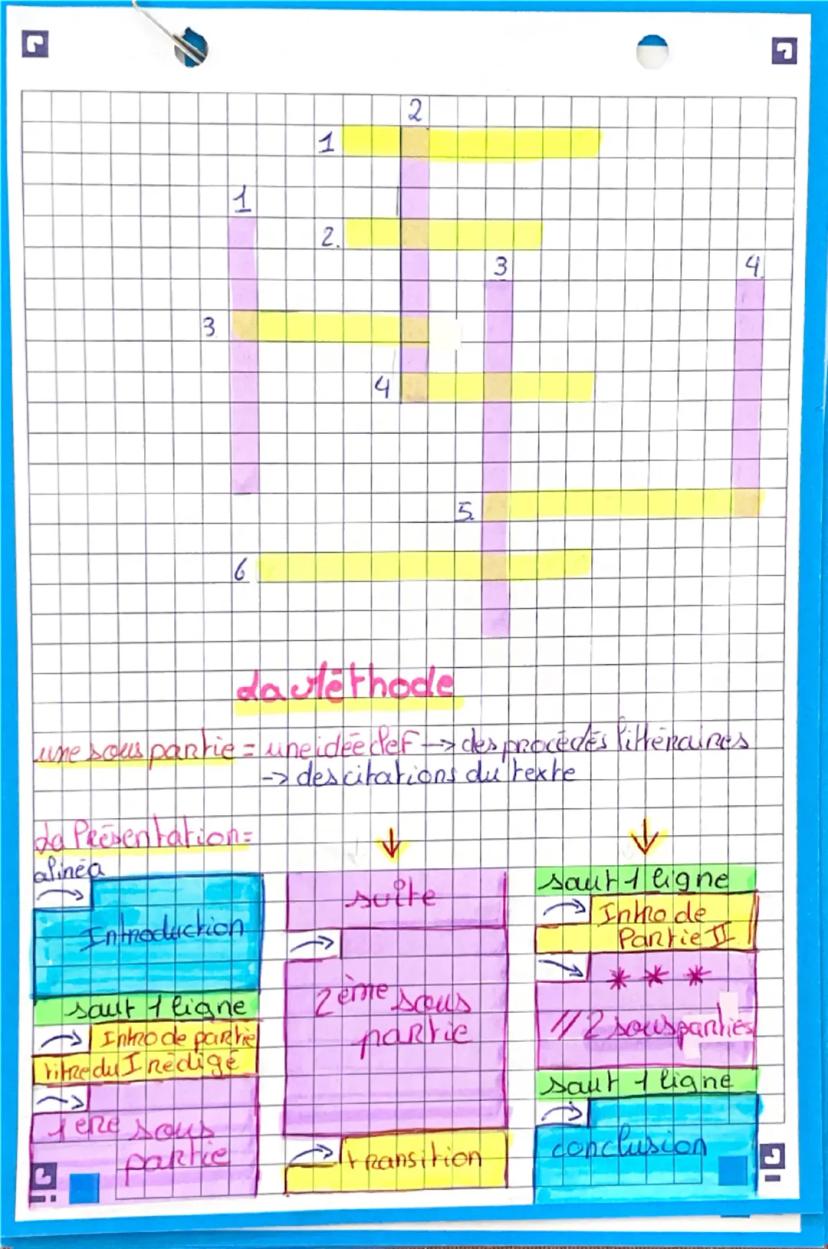 2
1
1
2.
3
4.
3
4
5.
6
La Méthode
une sous partie = une idée clef -> des procédés littéraires
-> des citations du texte
La Présentation =
alinéa
Introduction
saut 1 ligne
Intro de partie
titre du I rédigé
1ère sous
partie
suite
2ème sous
partie
transition
saut 1 ligne
Intro de
Partie II
* * *
// 2 sous parties
saut 1 ligne
conclusion